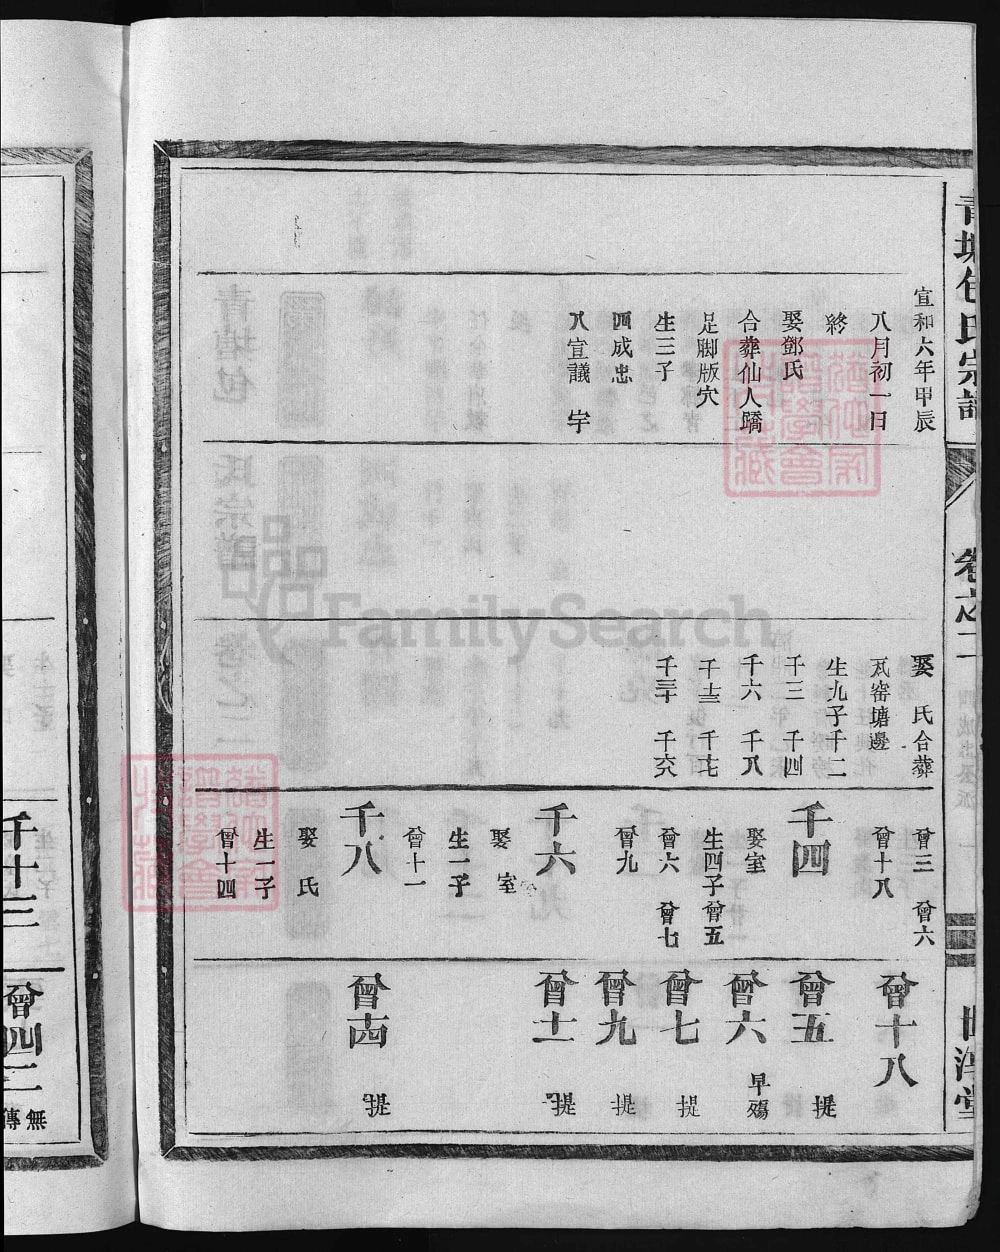 青塘包氏宗譜
卷之二
宣和六年甲辰
八月初一日
終
娶鄧氏
合葬仙人蹻
足脚版穴
生三子
四成忠
八宣議 字
娶 氏合葬
瓦窑塘邊
生九子千二
千三 千四
千六 千八
曾三 曾六
曾十八
千四
娶室
生四子曾五
曾六 曾七
曾九
千六
娶 室
生一子
曾十一
千八
娶 氏
生一子
曾十四
曾十八
曾五 提
曾六 早殤
曾七 提
曾九 提
曾十一 提
曾十四 提
千十三
無傳
FamilySearch